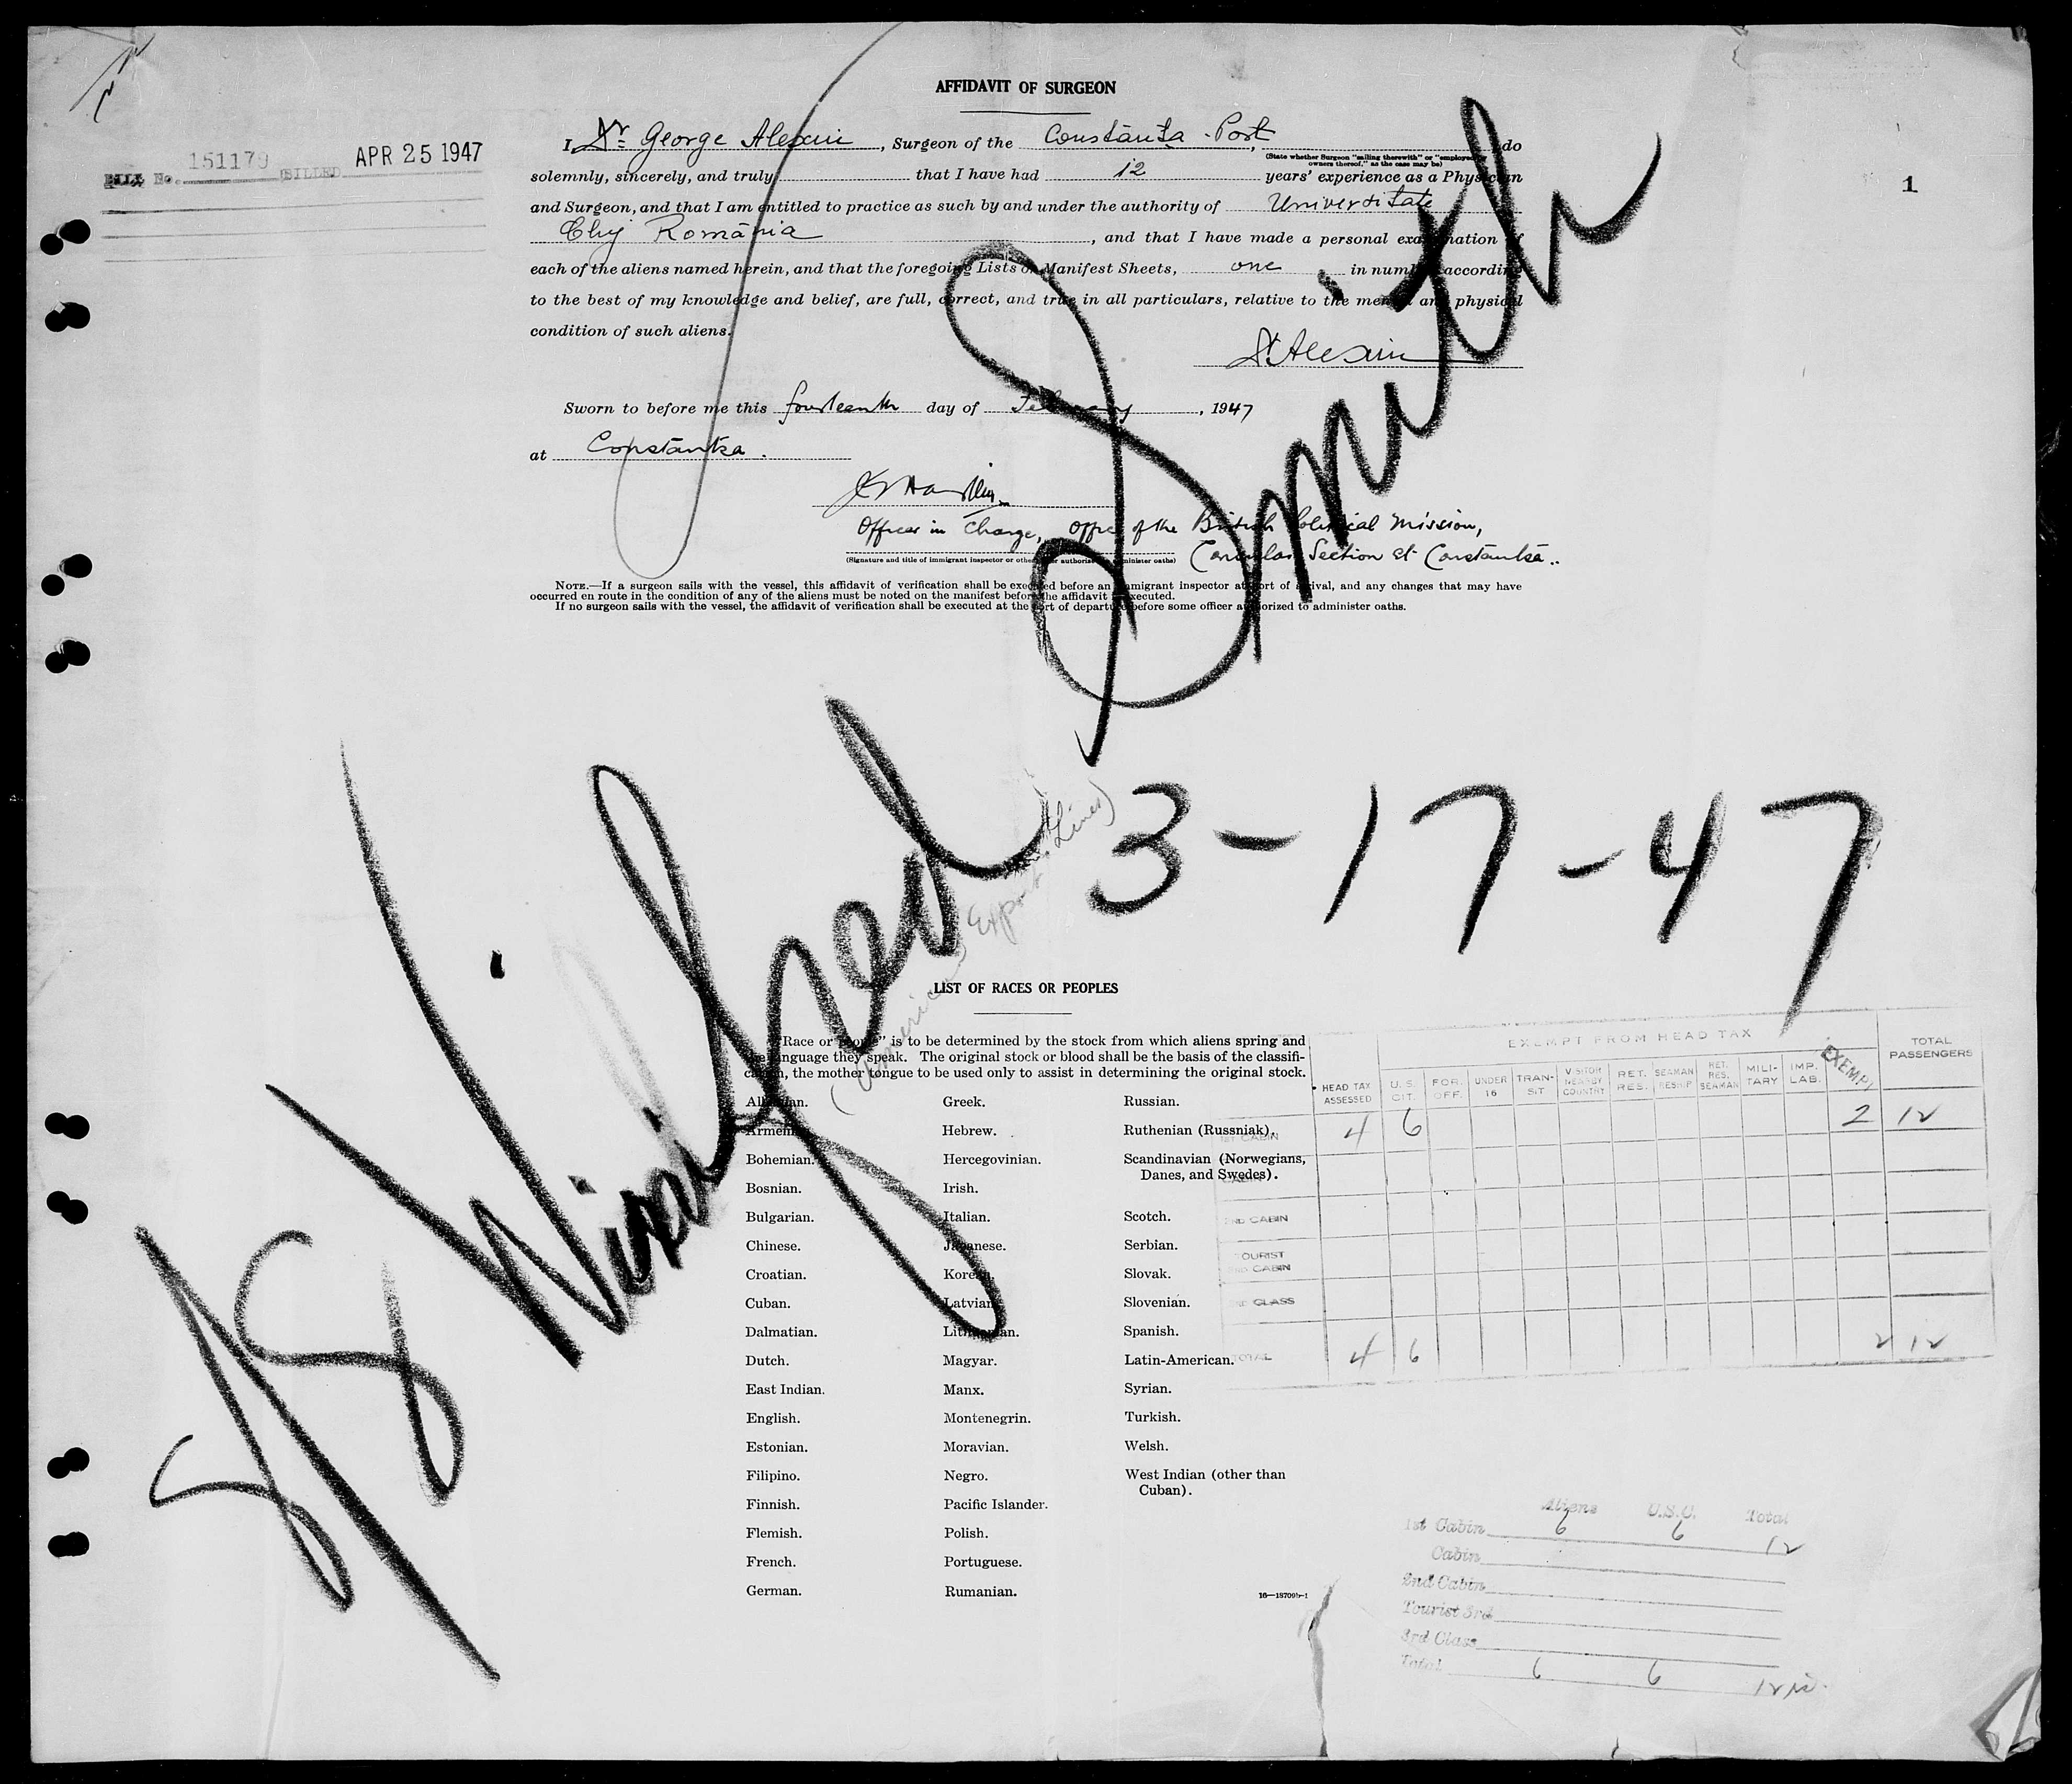 AFFIDAVIT OF SURGEON
BILL No. 151179 BILLED APR 25 1947
1
I, Dr. George Alexiu, Surgeon of the Constanța-Port, do
(State whether Surgeon "sailing therewith" or "employed owners thereof," as the case may be)
solemnly, sincerely, and truly that I have had 12 years' experience as a Physician
and Surgeon, and that I am entitled to practice as such by and under the authority of Universitate
Cluj România, and that I have made a personal examination of
each of the aliens named herein, and that the foregoing Lists or Manifest Sheets, one in number, according
to the best of my knowledge and belief, are full, correct, and true in all particulars, relative to the mental and physical
condition of such aliens.
Sworn to before me this fourteenth day of February, 1947
at Constantza.
Officer in Charge, Office of the British Political Mission,
Consular Section at Constantza..
(Signature and title of immigrant inspector or other officer authorized to administer oaths)
NOTE.—If a surgeon sails with the vessel, this affidavit of verification shall be executed before an immigrant inspector at port of arrival, and any changes that may have
occurred en route in the condition of any of the aliens must be noted on the manifest before the affidavit is executed.
If no surgeon sails with the vessel, the affidavit of verification shall be executed at the port of departure before some officer authorized to administer oaths.
SS Winifred Smith
(American Export Lines)
3-17-47
LIST OF RACES OR PEOPLES
"Race or people" is to be determined by the stock from which aliens spring and
the language they speak. The original stock or blood shall be the basis of the classifi-
cation, the mother tongue to be used only to assist in determining the original stock.
Albanian.
Armenian.
Bohemian.
Bosnian.
Bulgarian.
Chinese.
Croatian.
Cuban.
Dalmatian.
Dutch.
East Indian.
English.
Estonian.
Filipino.
Finnish.
Flemish.
French.
German.
Greek.
Hebrew.
Hercegovinian.
Irish.
Italian.
Japanese.
Korean.
Latvian.
Lithuanian.
Magyar.
Manx.
Montenegrin.
Moravian.
Negro.
Pacific Islander.
Polish.
Portuguese.
Rumanian.
Russian.
Ruthenian (Russniak).
Scandinavian (Norwegians,
Danes, and Swedes).
Scotch.
Serbian.
Slovak.
Slovenian.
Spanish.
Latin-American.
Syrian.
Turkish.
Welsh.
West Indian (other than
Cuban).
16—18709b-1
EXEMPT FROM HEAD TAX
HEAD TAX ASSESSED U.S. CIT. FOR. OFF. UNDER 16 TRAN-SIT VISITOR NEARBY COUNTRY RET. RES. SEAMAN RESHIP RET. RES. SEAMAN MILI-TARY IMP. LAB. EXEMPT TOTAL PASSENGERS
1ST CABIN 4 6 2 12
CABIN
2ND CABIN
TOURIST
2ND CABIN
3RD CLASS
TOTAL 4 6 2 12
Aliens U.S.C. Total
1st Cabin 6 6 12
Cabin
2nd Cabin
Tourist 3rd
3rd Class
Total 6 6 12